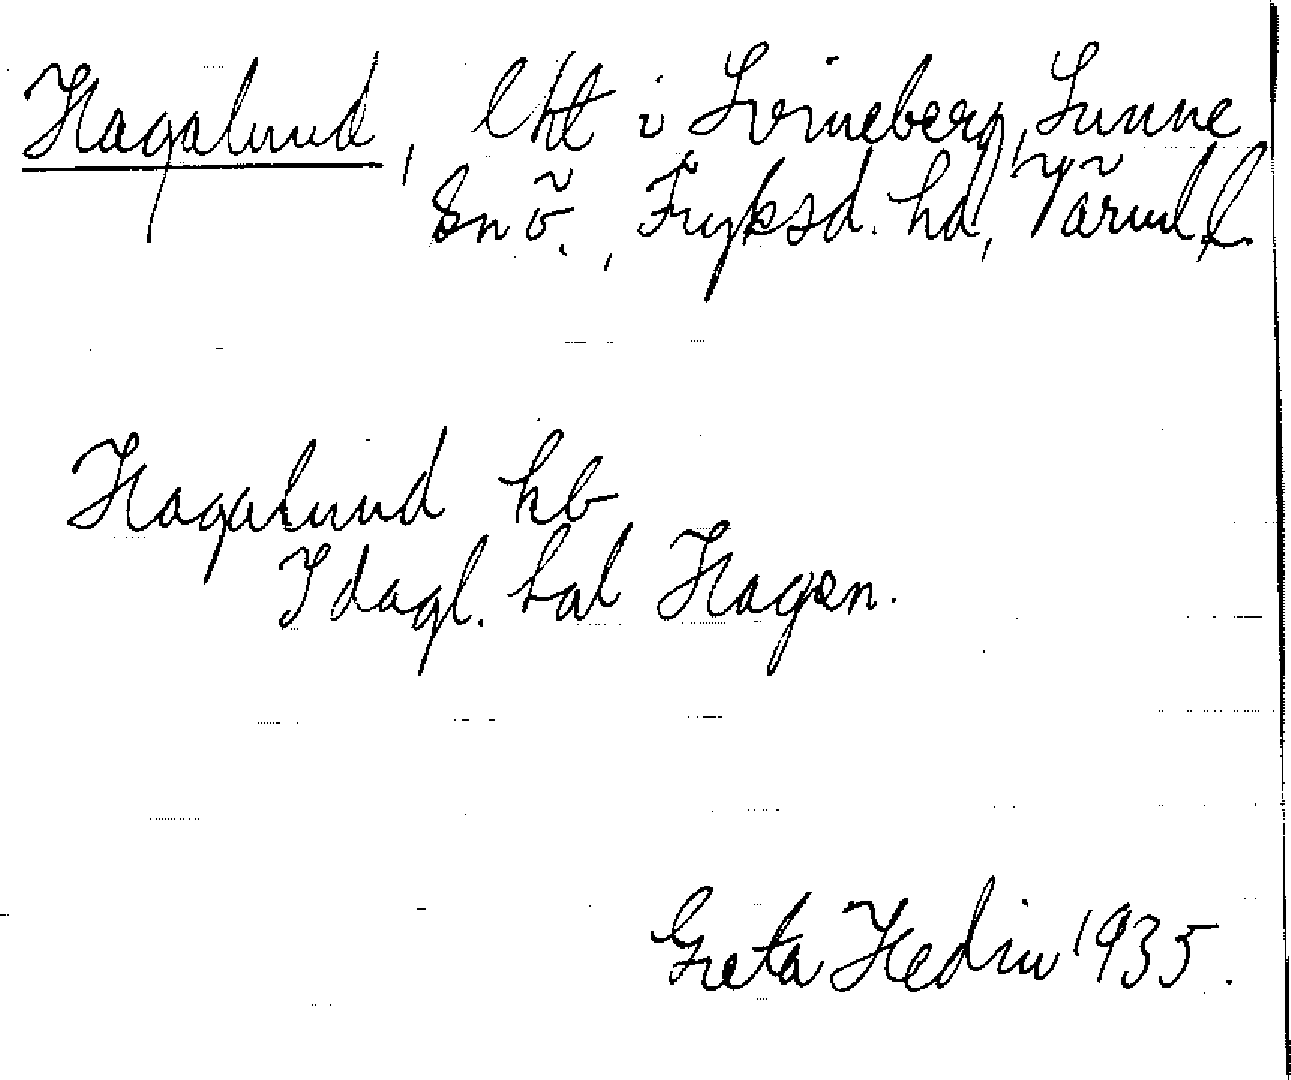 Hagalund, lht i Svineberg, Sunne
sn ö., Fryksd. hd, Värml
Hagalund hb
I dagl. tal Hagen.
Greta Hedin 1935.